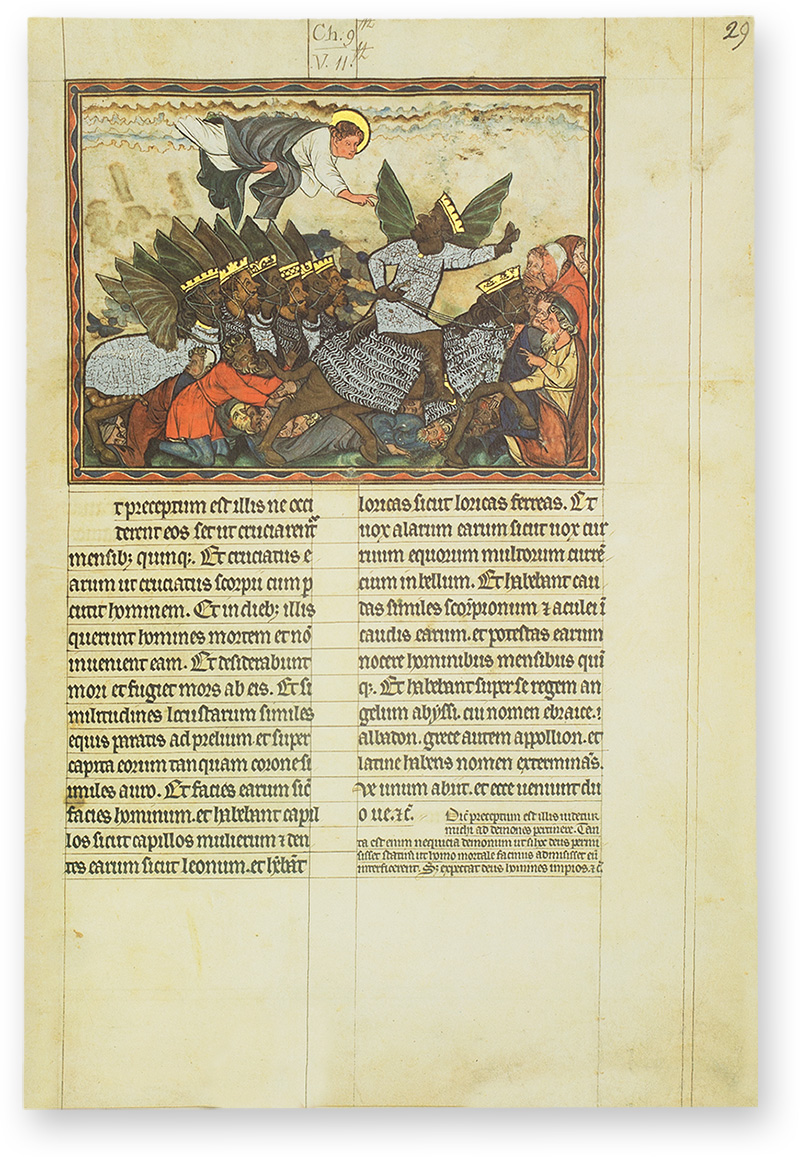 Ch. 9th
V. 11.th
29
t preceptum est illis ne occi
derent eos set ut cruciarent̉
mensib; quinq;. Et cruciatus e
arum ut cruciatus scorpii cum ꝑ
cutit hominem. Et in dieb; illis
querunt homines mortem et nō
inuenient eam. Et desiderabunt
mori et fugiet mors ab eis. Et si
militudines locustarum similes
equis paratis ad prelium. et super
capita eorum tanquam corone si
miles auro. Et facies earum sic̄
facies hominum. et habebant capil
los sicut capillos mulierum ⁊ den
tes earum sicut leonum. et heb̄ant
loricas sicut loricas ferreas. Et
uox alarum earum sicut uox cur
ruum equorum multorum currē
cium in bellum. Et habebant cau
das similes scorpionum ⁊ aculei ī
caudis earum. et potestas earum
nocere hominibus mensibus quī
q;. Et habebant super se regem an
gelum abyssi. cui nomen ebraice.
albadon. grece autem appollion. et
latine habens nomen exterminās.
Ve unum abiit. et ecce ueniunt du
o ue. ⁊c̄.
Qd̄ preceptum est illis uidetur
michi ad demones pertinere. Tan
ta est enim nequicia demonum ut si hoc deus permi
sisset statim ut homo mortale facinus admisisset eū
interficerent. S; expectat deus homines impios. ⁊c̄